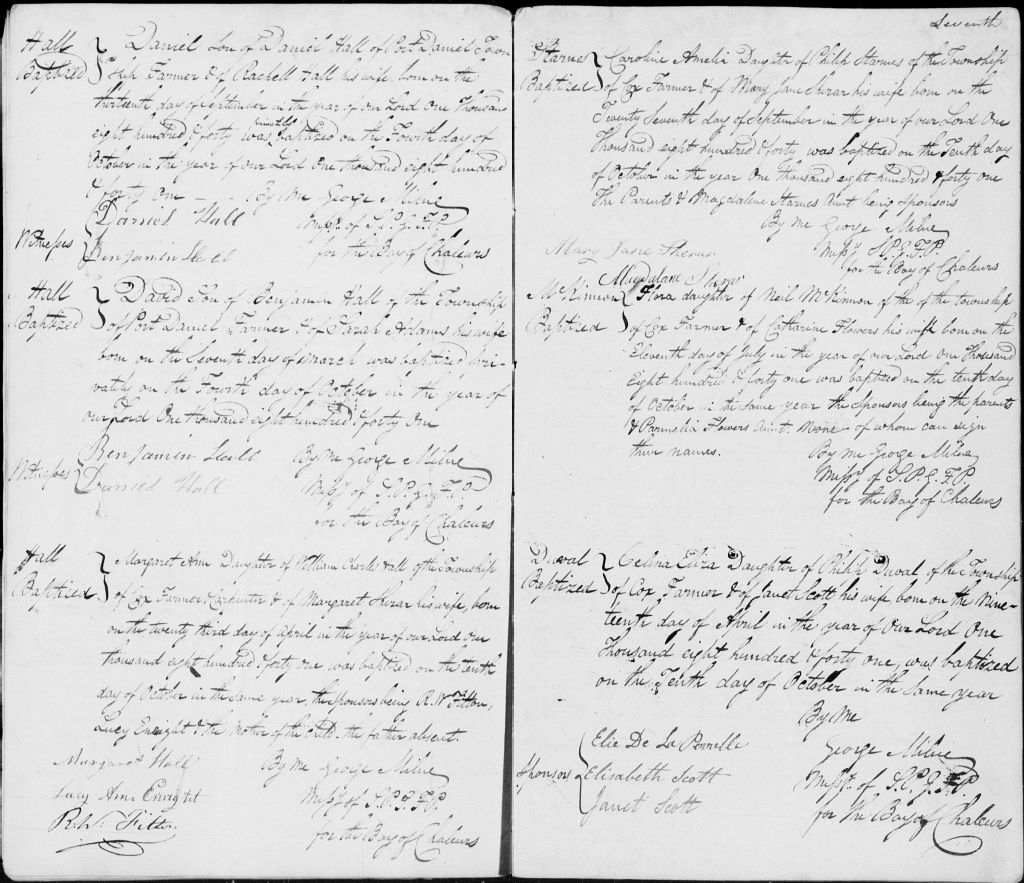 Hall
Baptized
Daniel Son of Daniel Hall of Port Daniel Town
Ship Farmer & of Rachell Hall his wife, born on the
thirteenth day of September in the year of our Lord One Thousand
eight hundred & forty was privately baptized on the Fourth day of
October in the year of our Lord One thousand eight hundred
& forty one - - . By Me George Milne
Daniel Hall Missy. of S.P.G.F.P.
Witnesses
Benjamin Hall for the Bay of Chaleurs
Hall
Baptized
David Son of Benjamin Hall of the Township
of Port Daniel Farmer & of Sarah Adams his wife
born on the Seventh day of March was baptized pri-
vately on the Fourth day of October in the year of
our Lord One thousand eight hundred & forty One
Benjamin Hall By Me George Milne
Witnesses
Daniel Hall Missy of S.P.G.F.P.
for the Bay of Chaleurs
Hall
Baptized
Margaret Ann Daughter of William Charles Hall of the Township
of Cox Farmer & Carpenter & of Margaret Shirar his wife, born
on the twenty third day of April in the year of our Lord One
thousand eight hundred & forty one was baptized on the tenth
day of October in the same year, the Sponsors being R.W. Fitton,
Lucy Enright & the Mother of the child, the father absent.
Margaret Hall By Me George Milne
Lucy Ann Enright Missy of S.P.G.F.P.
R.W. Fitton for the Bay of Chaleurs
Seventh
Starnes
Baptized
Caroline Amelia Daughter of Philip Starnes of the Township
of Cox Farmer & of Mary Jane Shirar his wife born on the
Twenty Seventh day of September in the year of our Lord One
Thousand eight hundred & forty was baptized on the Tenth day
of October in the year One thousand eight hundred & forty one
The Parents & Magdalene Starnes Aunt being Sponsors
By Me George Milne
Mary Jane Missy. S.P.G.F.P.
for the Bay of Chaleurs
McKinnon
Baptized
Flora daughter of Neil McKinnon of the of the township
of Cox Farmer & of Catharine Flowers his wife born on the
Eleventh day of July in the year of our Lord One Thousand
Eight hundred & forty one was baptized on the tenth day
of October in the same year the Sponsors being the parents
& Parmelia Flowers Aunt. None of whom can sign
their names. By Me George Milne
Missy of S.P.G.F.P.
for the Bay of Chaleurs
Duval
Baptized
Celina Eliza Daughter of Philip Duval of the Township
of Cox Farmer & of Janet Scott his wife, born on the Nine-
teenth day of April in the year of Our Lord One
Thousand eight hundred & forty one, was baptized
on the Tenth day of October in the Same year
By Me
Elie De La Perrelle George Milne
Sponsors
Elisabeth Scott Missy. of S.P.G.F.P.
Janet Scott for the Bay of Chaleurs